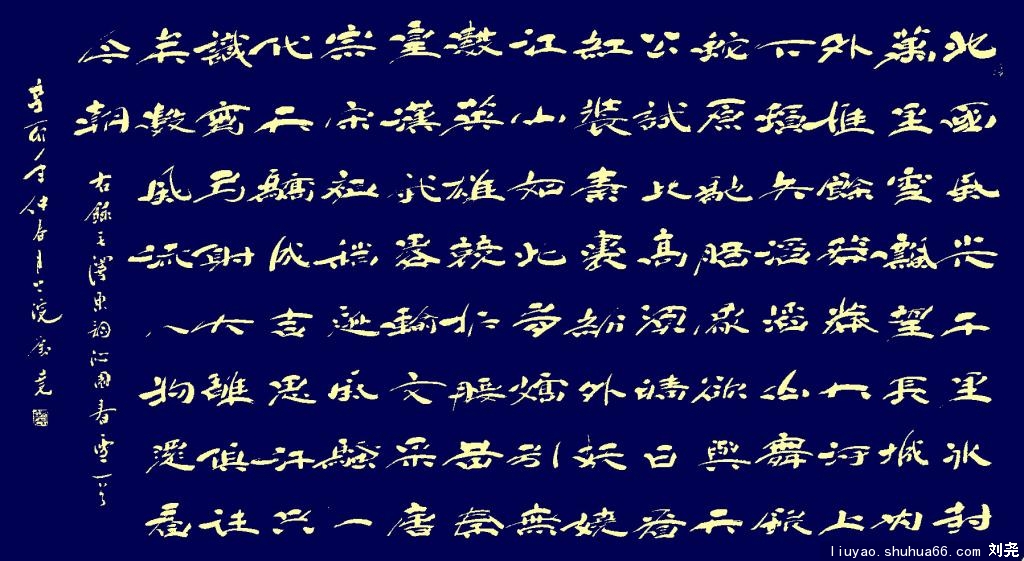 北國風光千里冰封
萬里雪飄望長城内
外惟餘莽莽大河上
下頓失滔滔山舞銀
蛇原馳腊象欲與天
公試比高須晴日看
紅裝素裹紛外妖嬈
江山如此多嬌引無
數英雄競折腰昔秦
皇漢武略輸文采唐
宗宋祖稍遜風騷一
代天驕成吉思汗只
識彎弓射大雕俱往
矣數風流人物還看
今朝
右錄毛澤東詞沁園春雪一首
年仲春月上浣劉堯
liuyao.shuhua66.com 刘尧